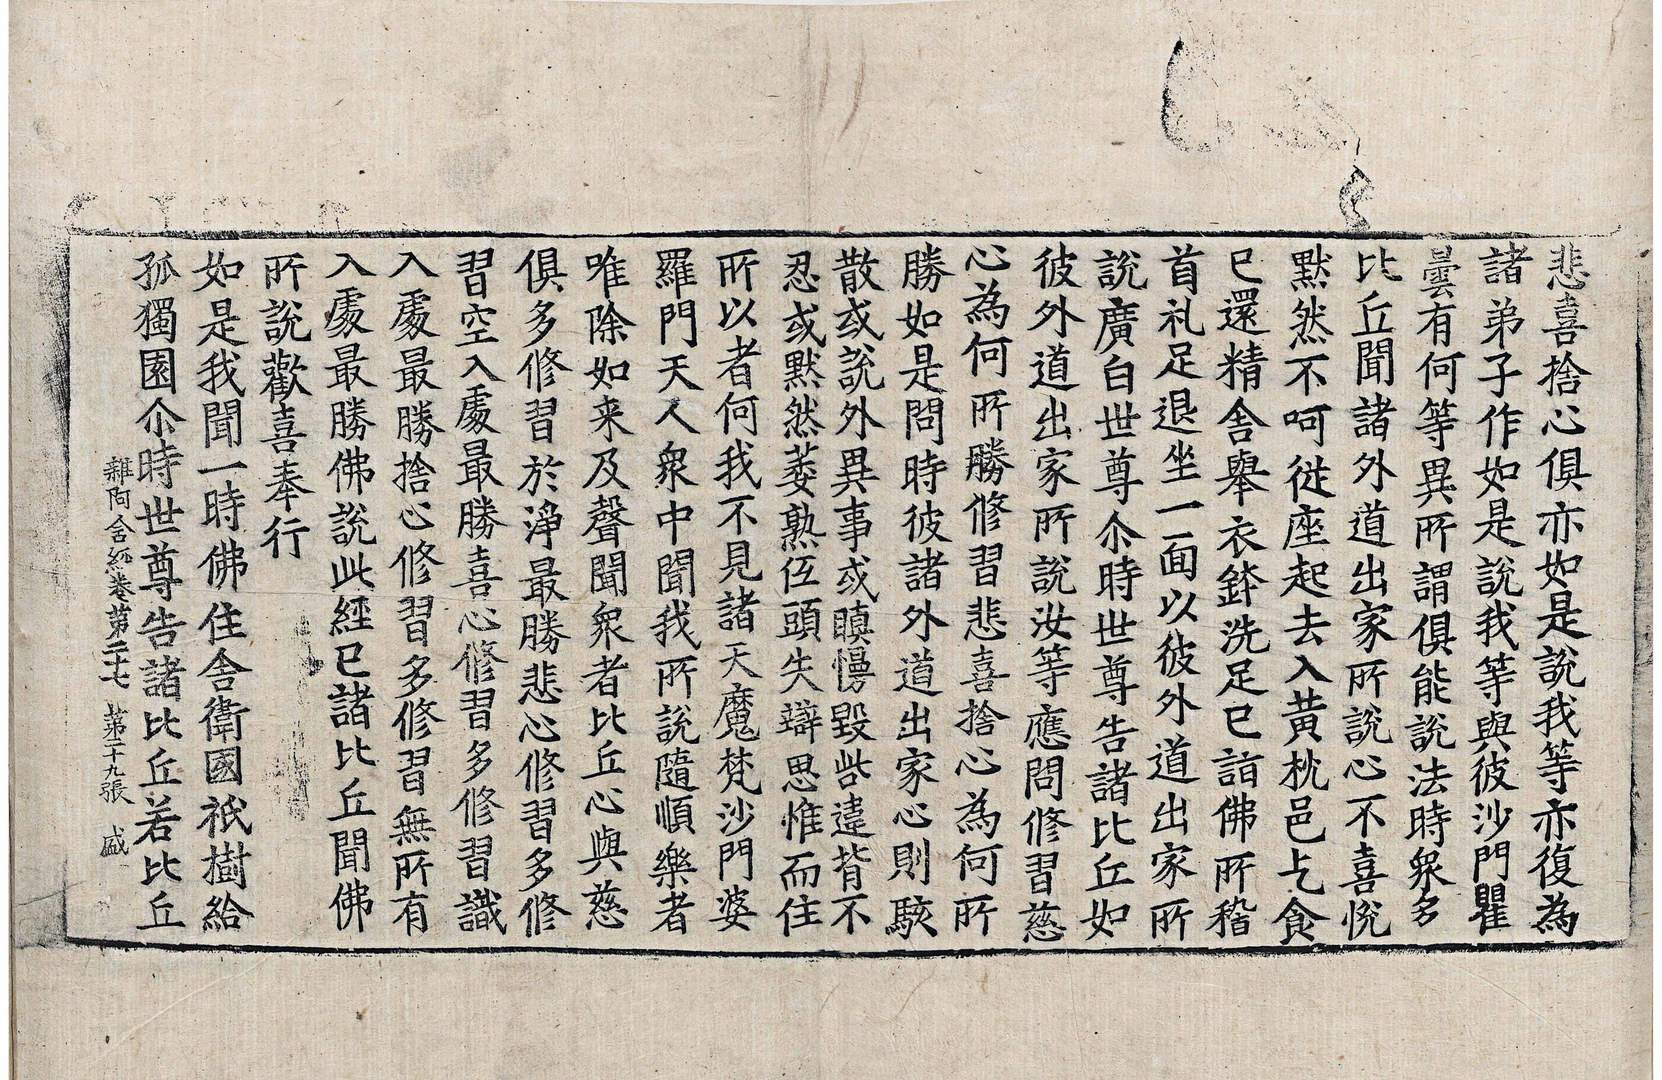 悲喜捨心俱亦如是說我等亦復為
諸弟子作如是說我等與彼沙門瞿
曇有何等異所謂俱能說法時衆多
比丘聞諸外道出家所說心不喜悅
黙然不呵從座起去入黃枕邑乞食
已還精舍舉衣鉢洗足已詣佛所稽
首礼足退坐一面以彼外道出家所
說廣白世尊尒時世尊告諸比丘如
彼外道出家所說汝等應問修習慈
心為何所勝修習悲喜捨心為何所
勝如是問時彼諸外道出家心則駭
散或說外異事或瞋慢毀呰違背不
忍或黙然萎熟低頭失辯思惟而住
所以者何我不見諸天魔梵沙門婆
羅門天人衆中聞我所說隨順樂者
唯除如来及聲聞衆者比丘心與慈
俱多修習於淨最勝悲心修習多修
習空入處最勝喜心修習多修習識
入處最勝捨心修習多修習無所有
入處最勝佛說此經已諸比丘聞佛
所說歡喜奉行
如是我聞一時佛住舍衛國祇樹給
孤獨園尒時世尊告諸比丘若比丘
雜阿含経卷第二十七 第二十九張 盛